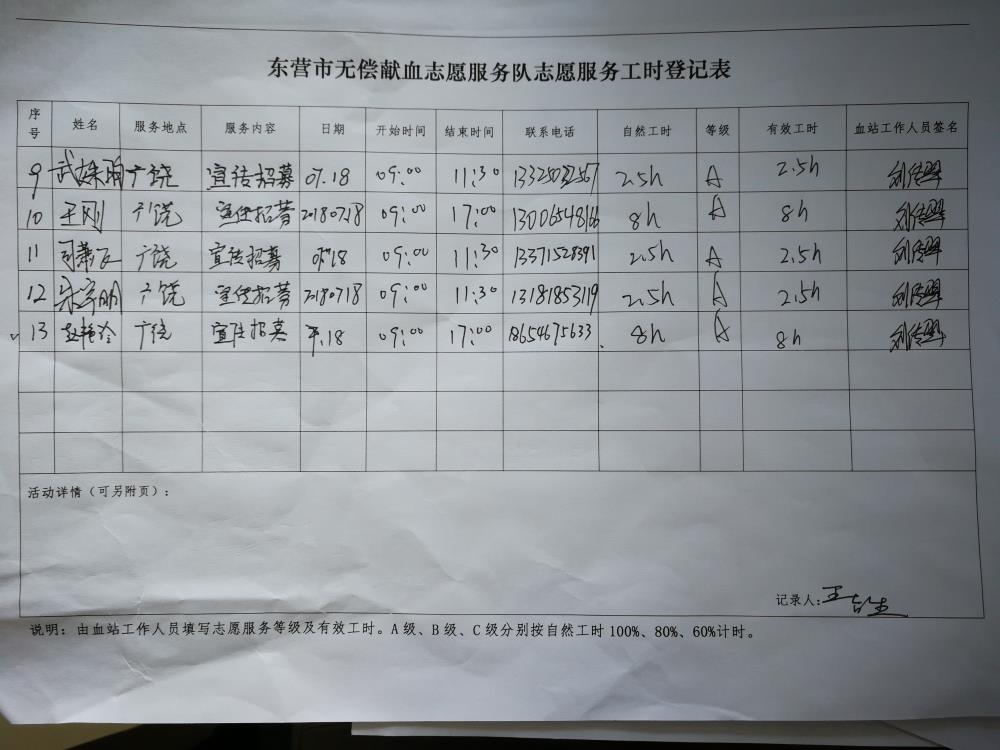 东营市无偿献血志愿服务队志愿服务工时登记表
序号 姓名 服务地点 服务内容 日期 开始时间 结束时间 联系电话 自然工时 等级 有效工时 血站工作人员签名
9 广饶 宣传招募 07.18 09:00 11:30 2.5h A 2.5h
10 王刚 广饶 宣传招募 20180718 09:00 17:00 8h A 8h
11 广饶 宣传招募 09:00 11:30 13371528391 2.5h A 2.5h
12 广饶 宣传招募 20180718 09:00 11:30 13181853119 2.5h A 2.5h
13 广饶 宣传招募 09:00 17:00 18654675633 8h A 8h
活动详情（可另附页）：
记录人:
说明：由血站工作人员填写志愿服务等级及有效工时。A级、B级、C级分别按自然工时100%、80%、60%计时。